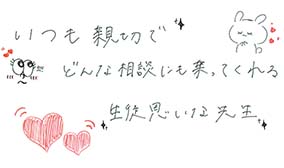 いつも親切で
どんな相談にも乗ってくれる
生徒思いな先生